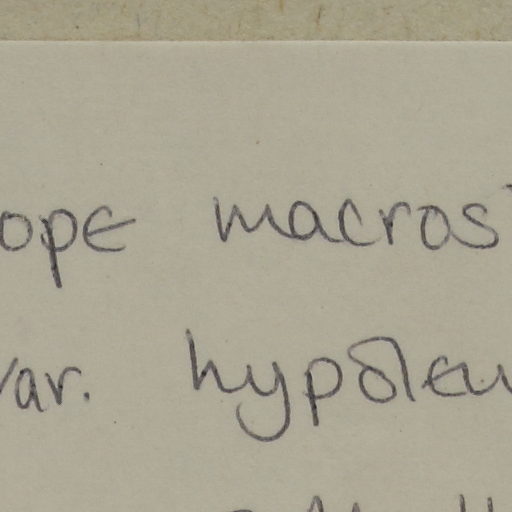 ope macros
var. hypoleu